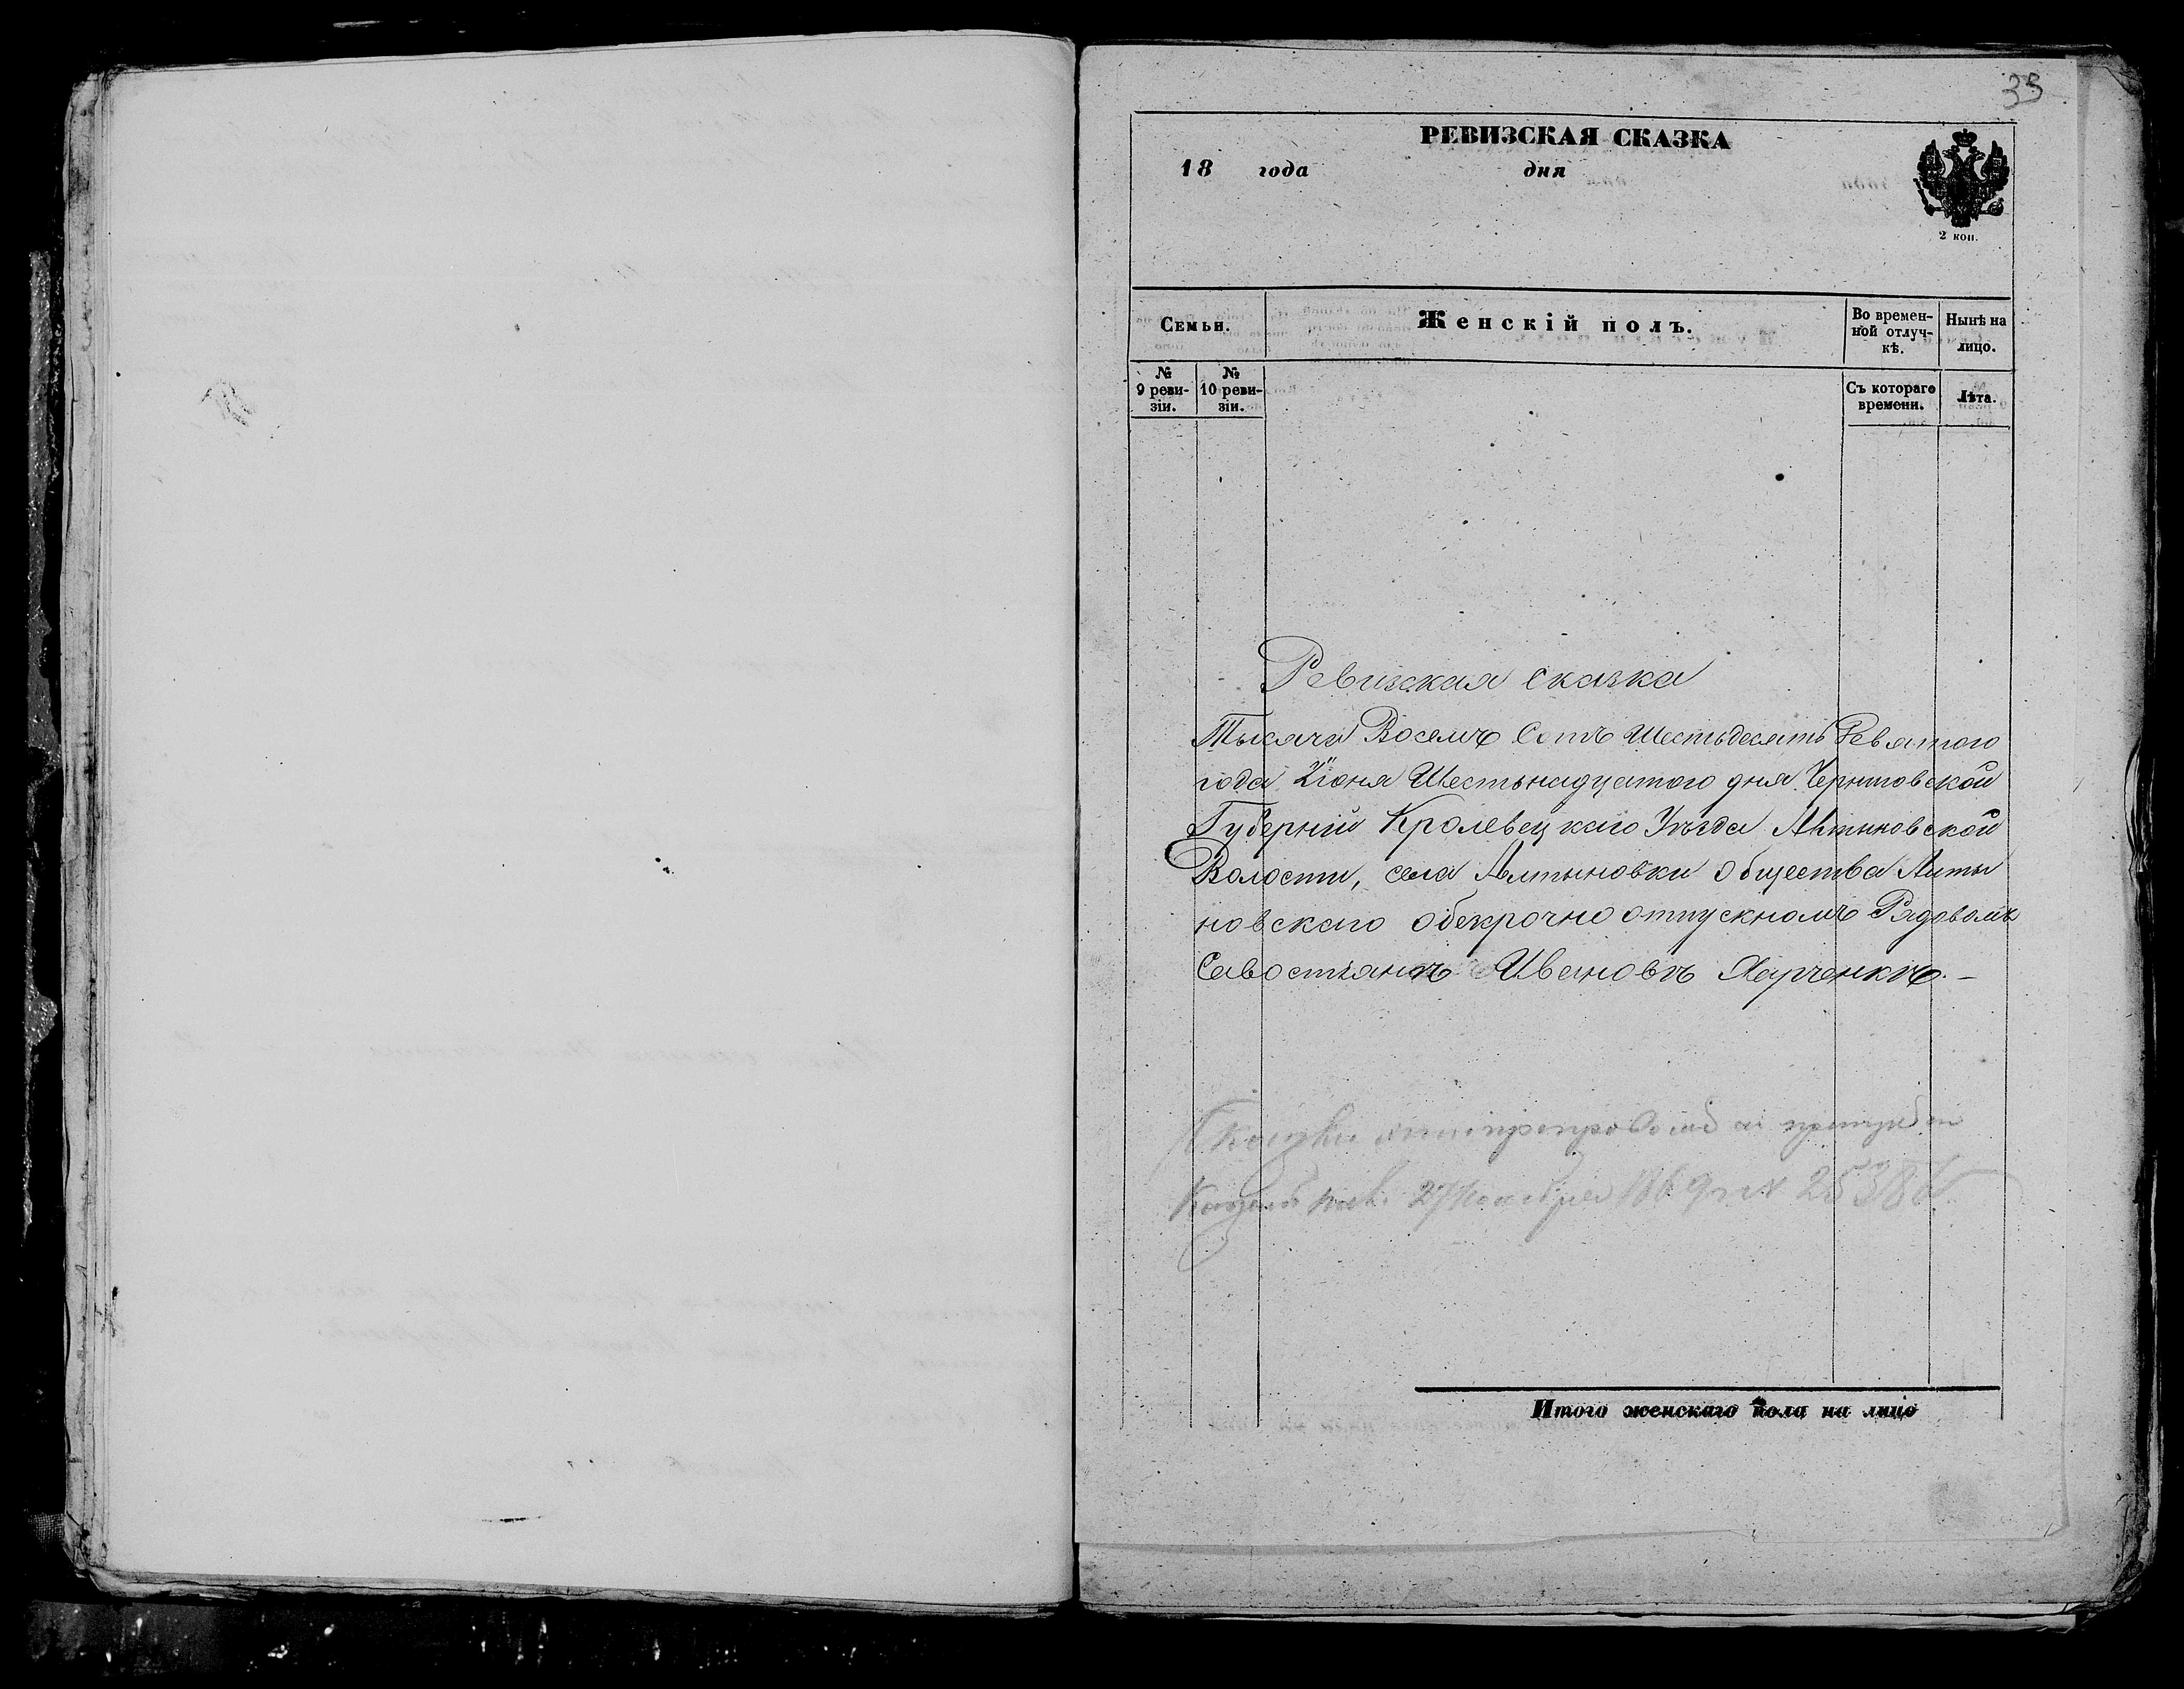 33
РЕВИЗСКАЯ СКАЗКА
18 года дня
2 коп.
Семьи.
Женскій полъ.
Во времен-
ной отлуч-
кѣ.
Нынѣ на
лицо.
№
9 реви-
зіи.
№
10 реви-
зіи.
Съ котораго
времени.
Лѣта.
Ревизская сказка
Тысяча Восемъ Сотъ Шестьдесятъ Девятого
года Іюня Шестьнадцатого дня Черниговской
Губерніи Кролевецкаго Уѣзда Алтыновской
Волости, села Алтыновки общества Алты
новскаго обезсрочно отпускномъ Рядовомъ
Савостіянѣ Ивановѣ Харченкѣ. –
27 Ноября 1869
Итого женскаго пола на лицо